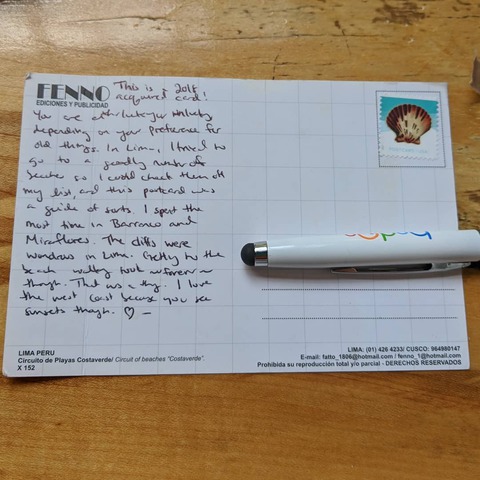 FENNO
EDICIONES Y PUBLICIDAD
This is a 2018
acquired card!
You are either lucky or unlucky
depending on your preference for
old things. In Lima, I tried to
go to a goodly number of
beaches so I could check them off
my list, and this postcard was
a guide of sorts. I spent the
most time in Barranco and
Miraflores. The cliffs were
wondrous in Lima. Getting to the
beach walking took ~forever~
though. That was a thing. I love
the west coast because you see
sunsets though. ♡ —
LIMA PERU
Circuito de Playas Costaverde/ Circuit of beaches "Costaverde".
X 152
LIMA: (01) 426 4233/ CUSCO: 964980147
E-mail: fatto_1806@hotmail.com / fenno_1@hotmail.com
Prohibida su reproducción total y/o parcial - DERECHOS RESERVADOS